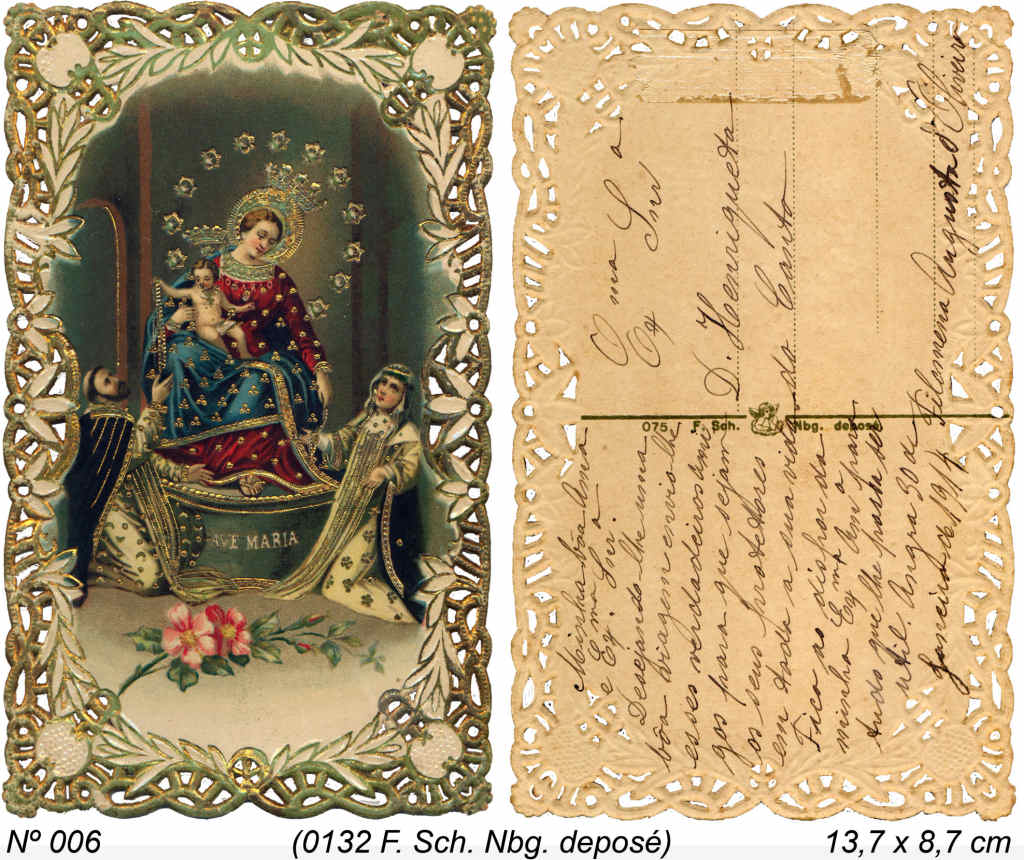 AVE MARIA
Ex
D. Henriqueta
Canto
075. F. Sch. Nbg. deposé
Minha bôa Ama
e Ex. Snr.a
Desejando-lhe uma
bôa viagem envio-lhe
esses verdadeiros ami
gos para que sejam
os seus protectores
em toda a sua vida
Fica ao dispor da
minha Exma Am a para
tudo que lhe possa ser
util. Angra 30 de
Janeiro de 1914
Filomena Augusta d'Oliveira
Nº 006
(0132 F. Sch. Nbg. deposé)
13,7 x 8,7 cm